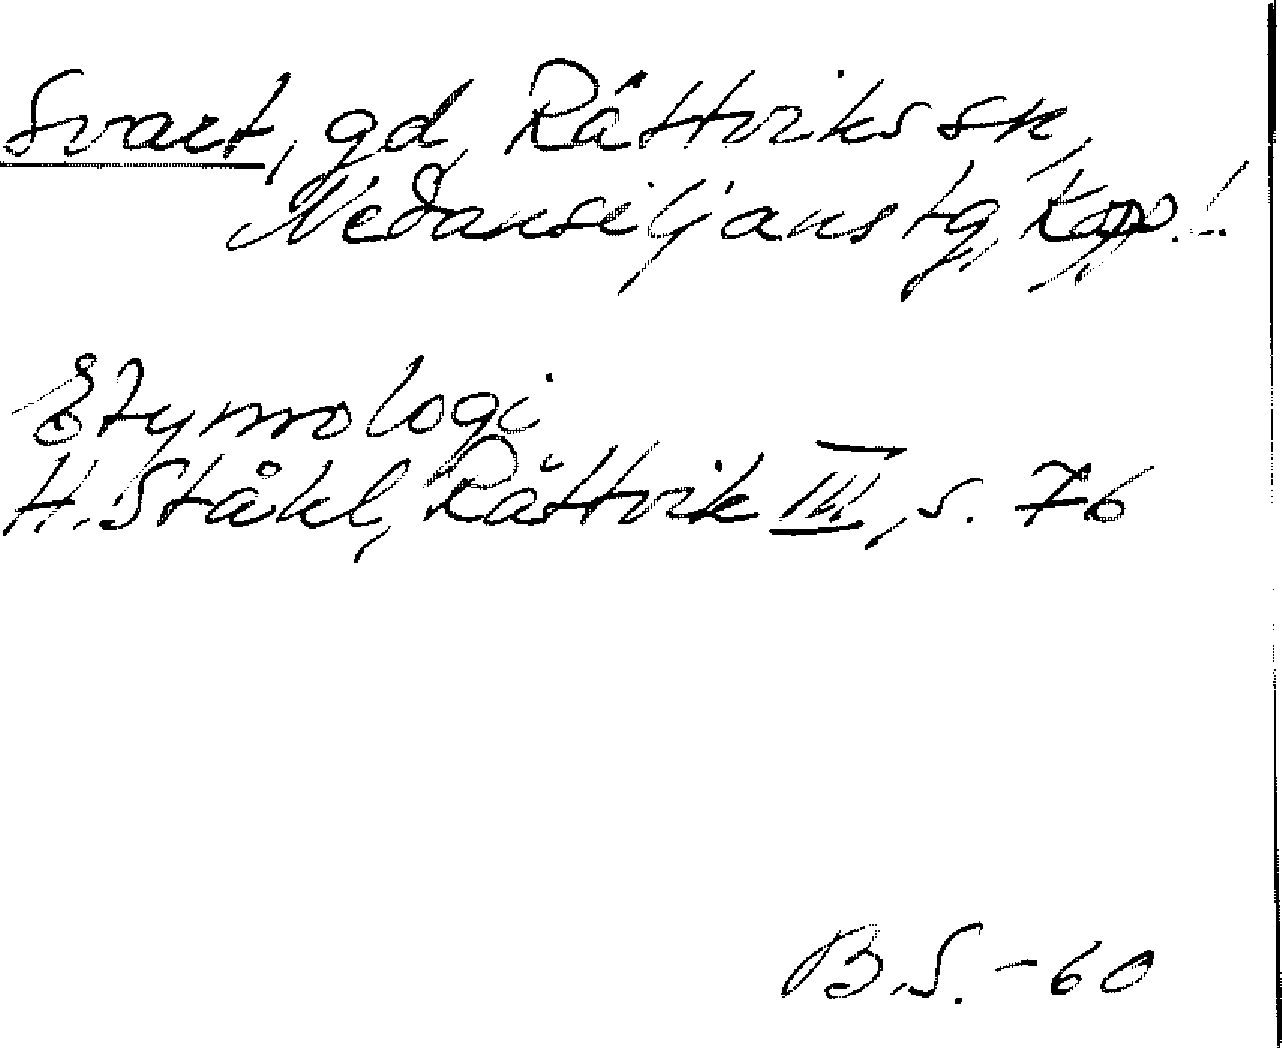 Svart, gd, Rättviks sn,
Nedansiljans tg, Kopp.!
Etymologi
H. Ståhl, Rättvik III, s. 76
B.S. - 60